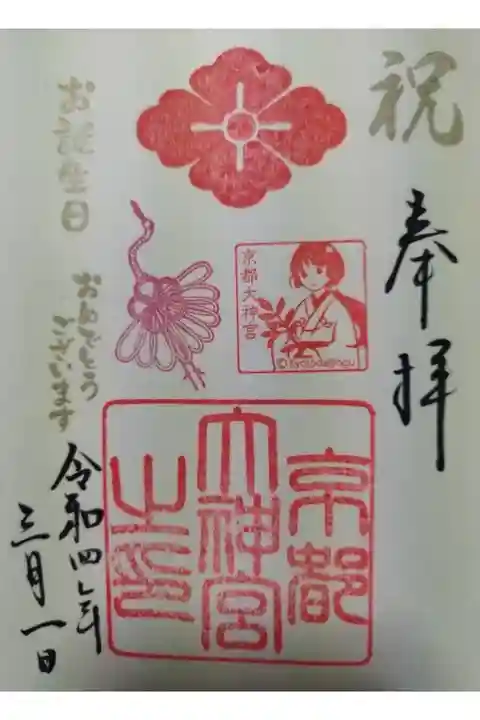 祝
奉拝
京都大神宮
©kyotodaijingu
京都
大神宮
之印
お誕生日
おめでとう
ございます
令和四年
三月一日